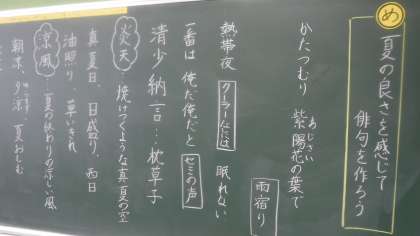 め
夏の良さを感じて
俳句を作ろう
かたつむり 紫陽花の葉で 雨宿り
あじさい
熱帯夜 クーラーなしには 眠れない
一番は 俺だ俺だと セミの声
清少納言…枕草子
炎天…焼けつくような真夏の空
真夏日、日盛り、西日
油照り、草いきれ
涼風 夏の終わりの涼しい風
朝凉、夕涼、夏おしむ